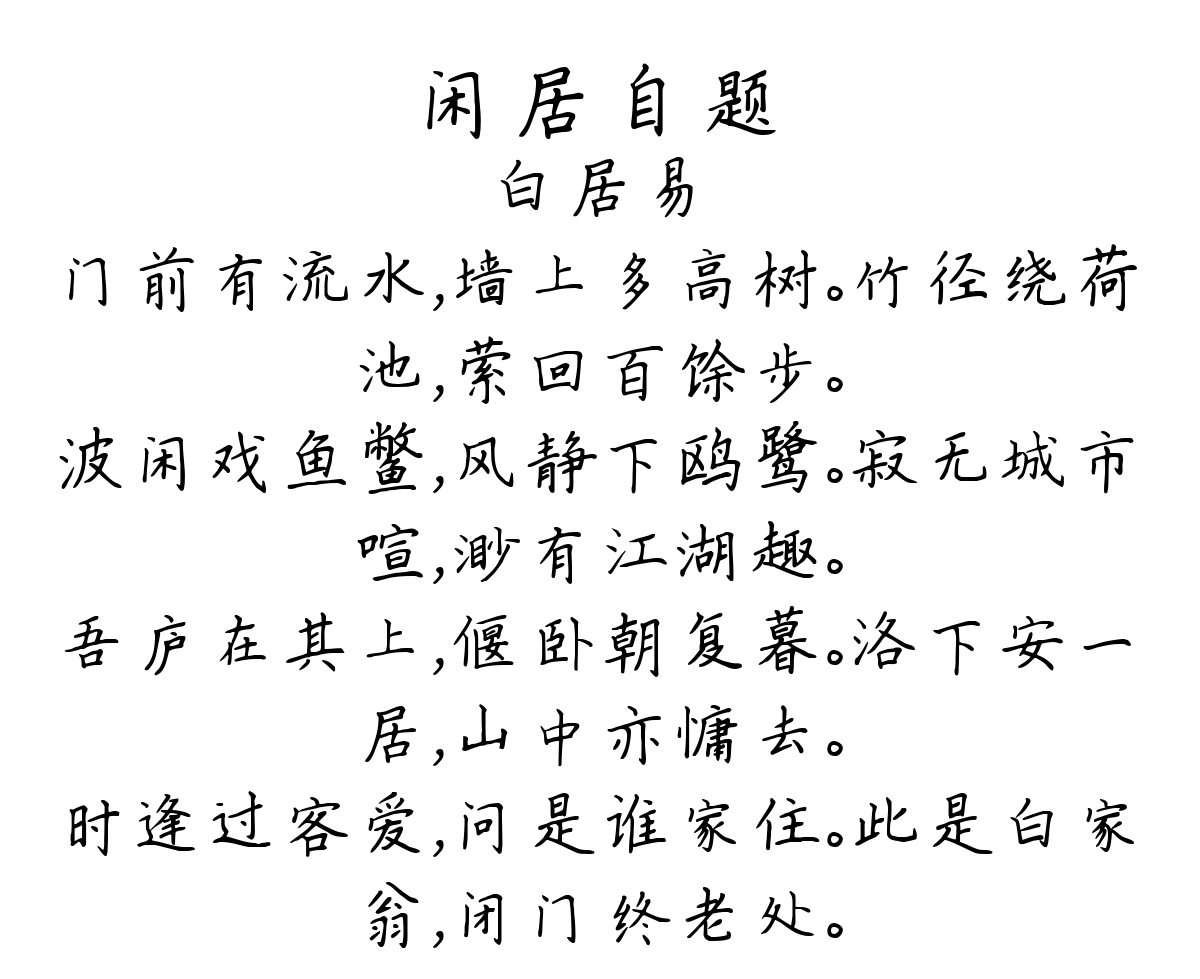 闲居自题
白居易
门前有流水,墙上多高树。竹径绕荷
池,萦回百馀步。
波闲戏鱼鳖,风静下鸥鹭。寂无城市
喧,渺有江湖趣。
吾庐在其上,偃卧朝复暮。洛下安一
居,山中亦慵去。
时逢过客爱,问是谁家住。此是白家
翁,闭门终老处。